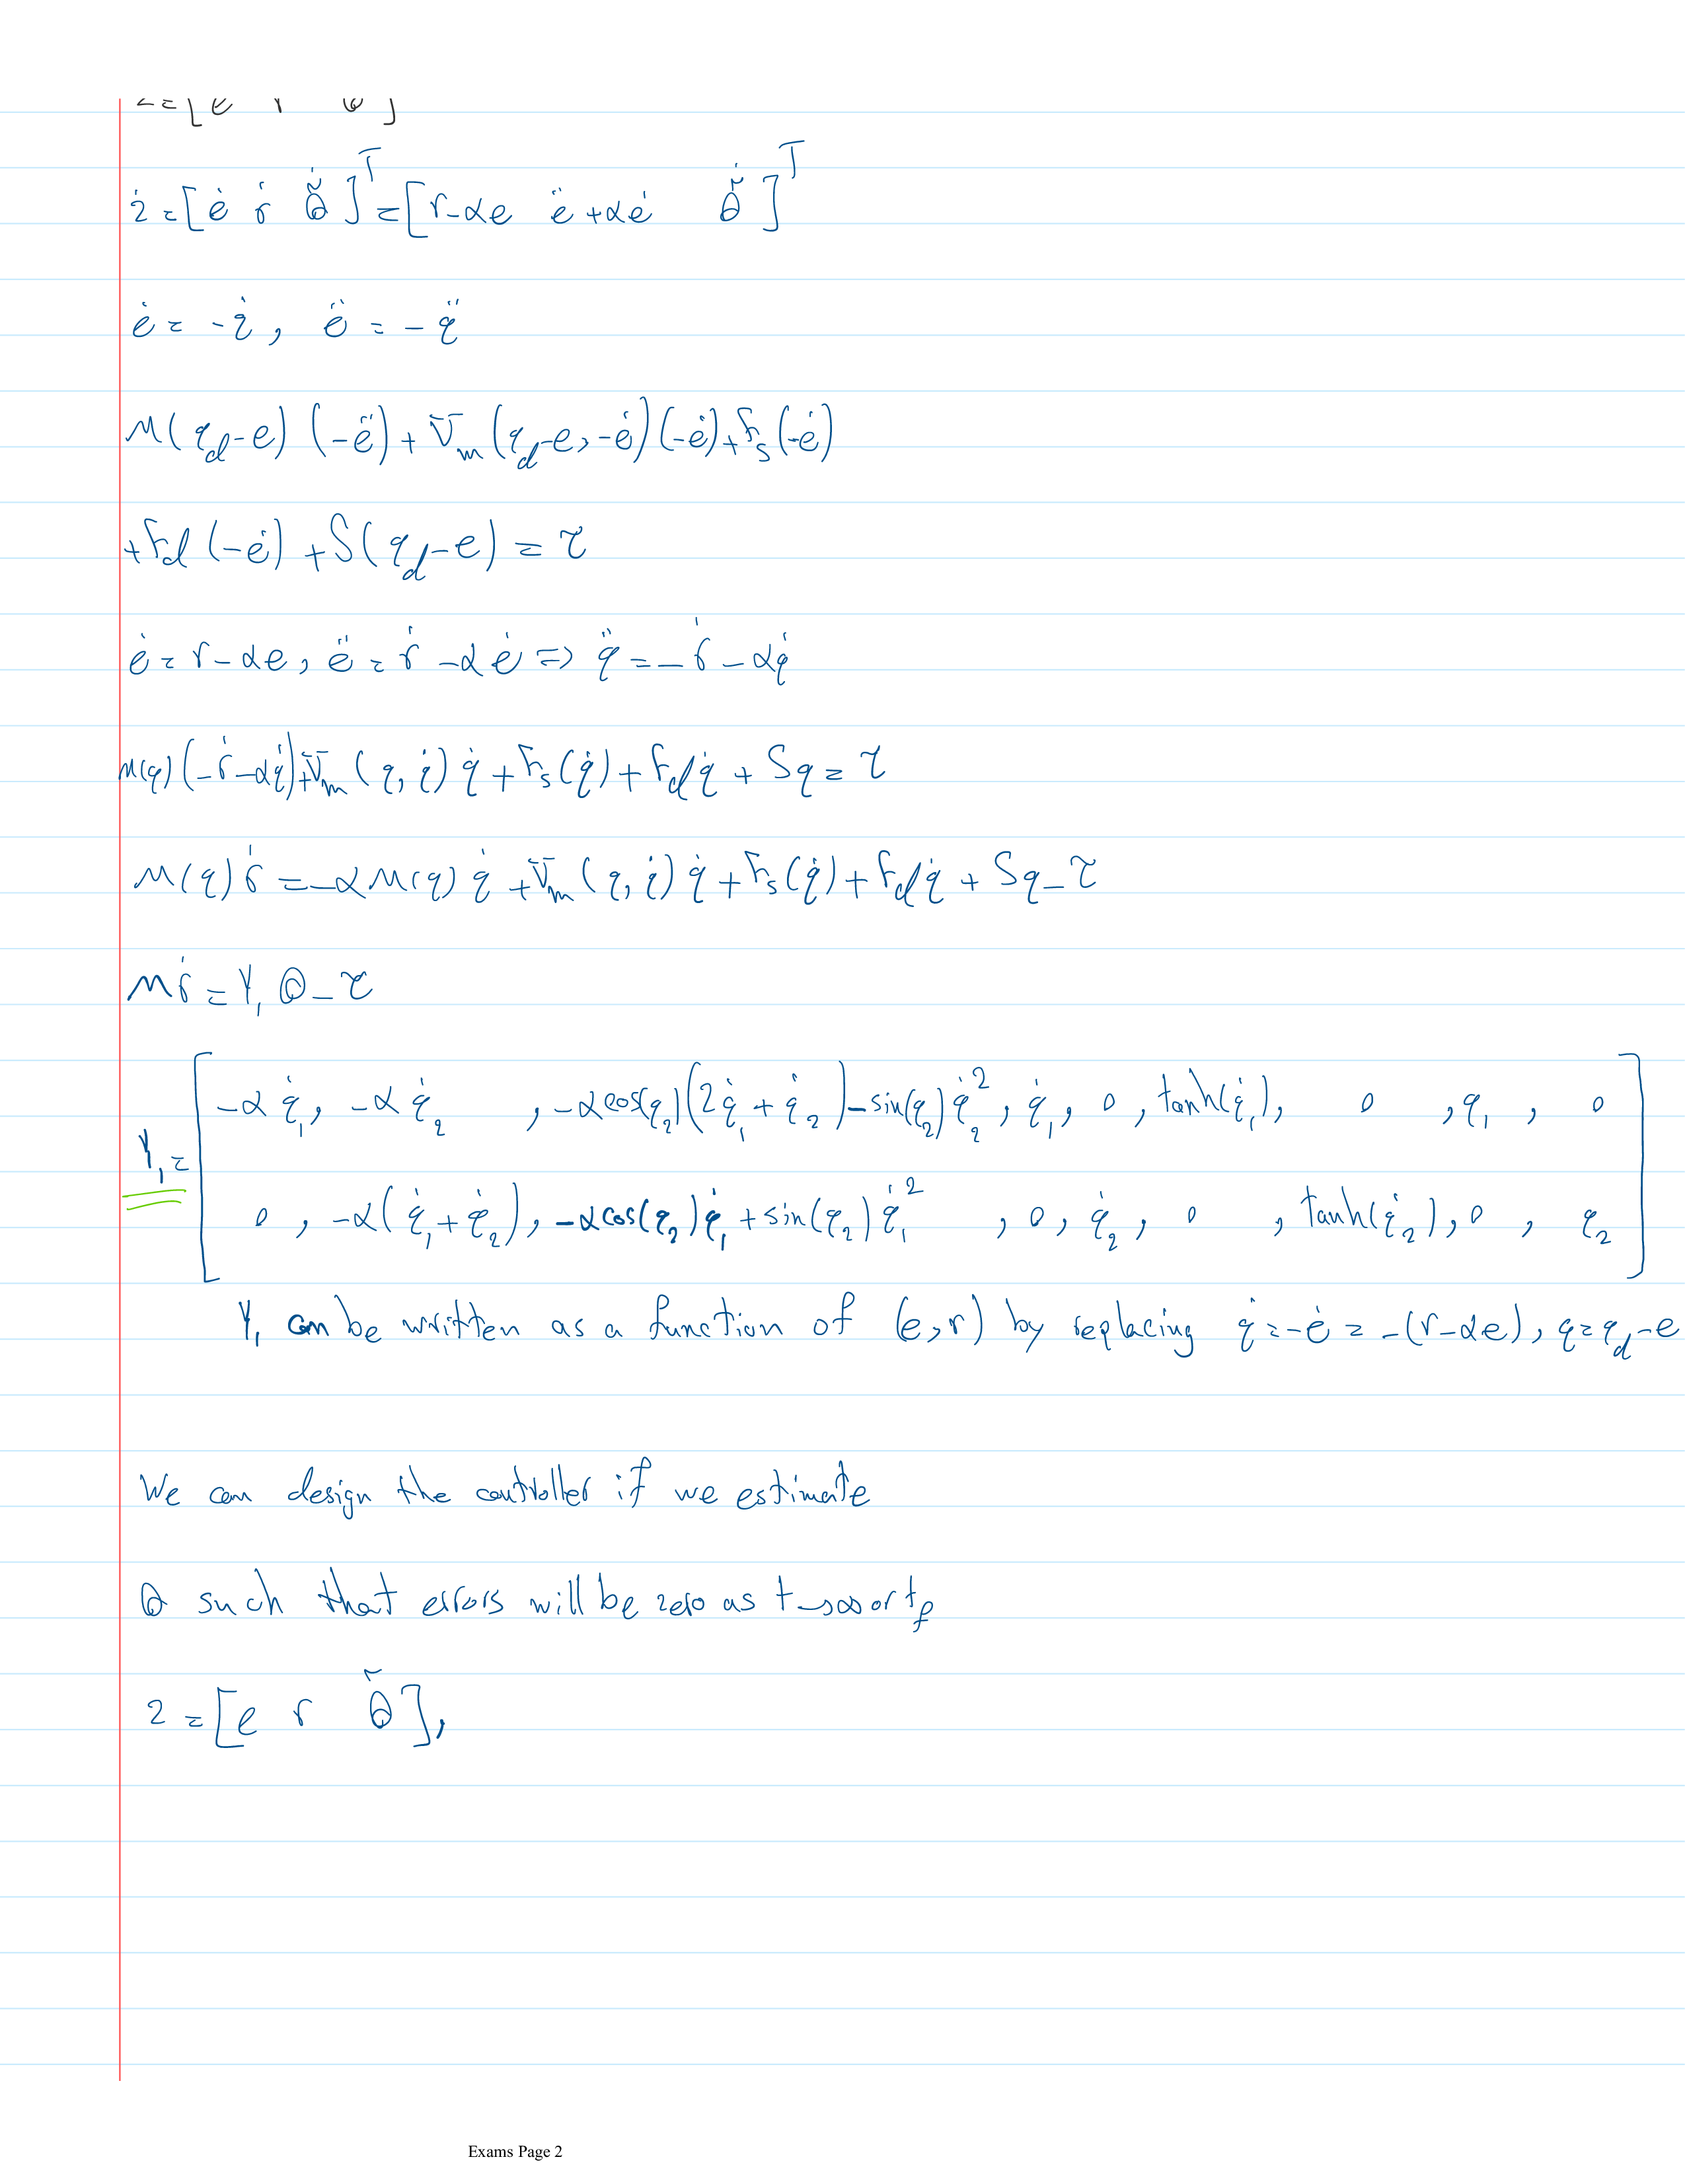 z = [e r θ̃]
ż = [ė ṙ θ̃̇]ᵀ = [r-αe ë+αė θ̃̇]ᵀ
ė = -q̇, ë = -q̈
M(q_d-e)(-ë) + V_m(q_d-e, -ė)(-ė) + F_s(-ė)
+F_d(-ė) + S(q_d-e) = τ
ė = r-αe, ë = ṙ-αė => q̈ = -ṙ-αq̇
M(q)(-ṙ-αq̇)+V_m(q, q̇)q̇ + F_s(q̇) + F_d q̇ + Sq = τ
M(q)ṙ = -αM(q)q̇ + V_m(q, q̇)q̇ + F_s(q̇) + F_d q̇ + Sq - τ
Mṙ = Y₁θ - τ
Y₁ = [-αq̇₁, -αq̇₂, -αcos(q₂)(2q̇₁+q̇₂)-sin(q₂)q̇₂², q̇₁, 0, tanh(q̇₁), 0, q₁, 0
0, -α(q̇₁+q̇₂), -αcos(q₂)q̇₁+sin(q₂)q̇₁², 0, q̇₂, 0, tanh(q̇₂), 0, q₂]
Y₁ can be written as a function of (e,r) by replacing q̇ = -ė = -(r-αe), q = q_d-e
We can design the controller if we estimate
θ such that errors will be zero as t→∞ or t_f
z = [e r θ̃],
Exams Page 2